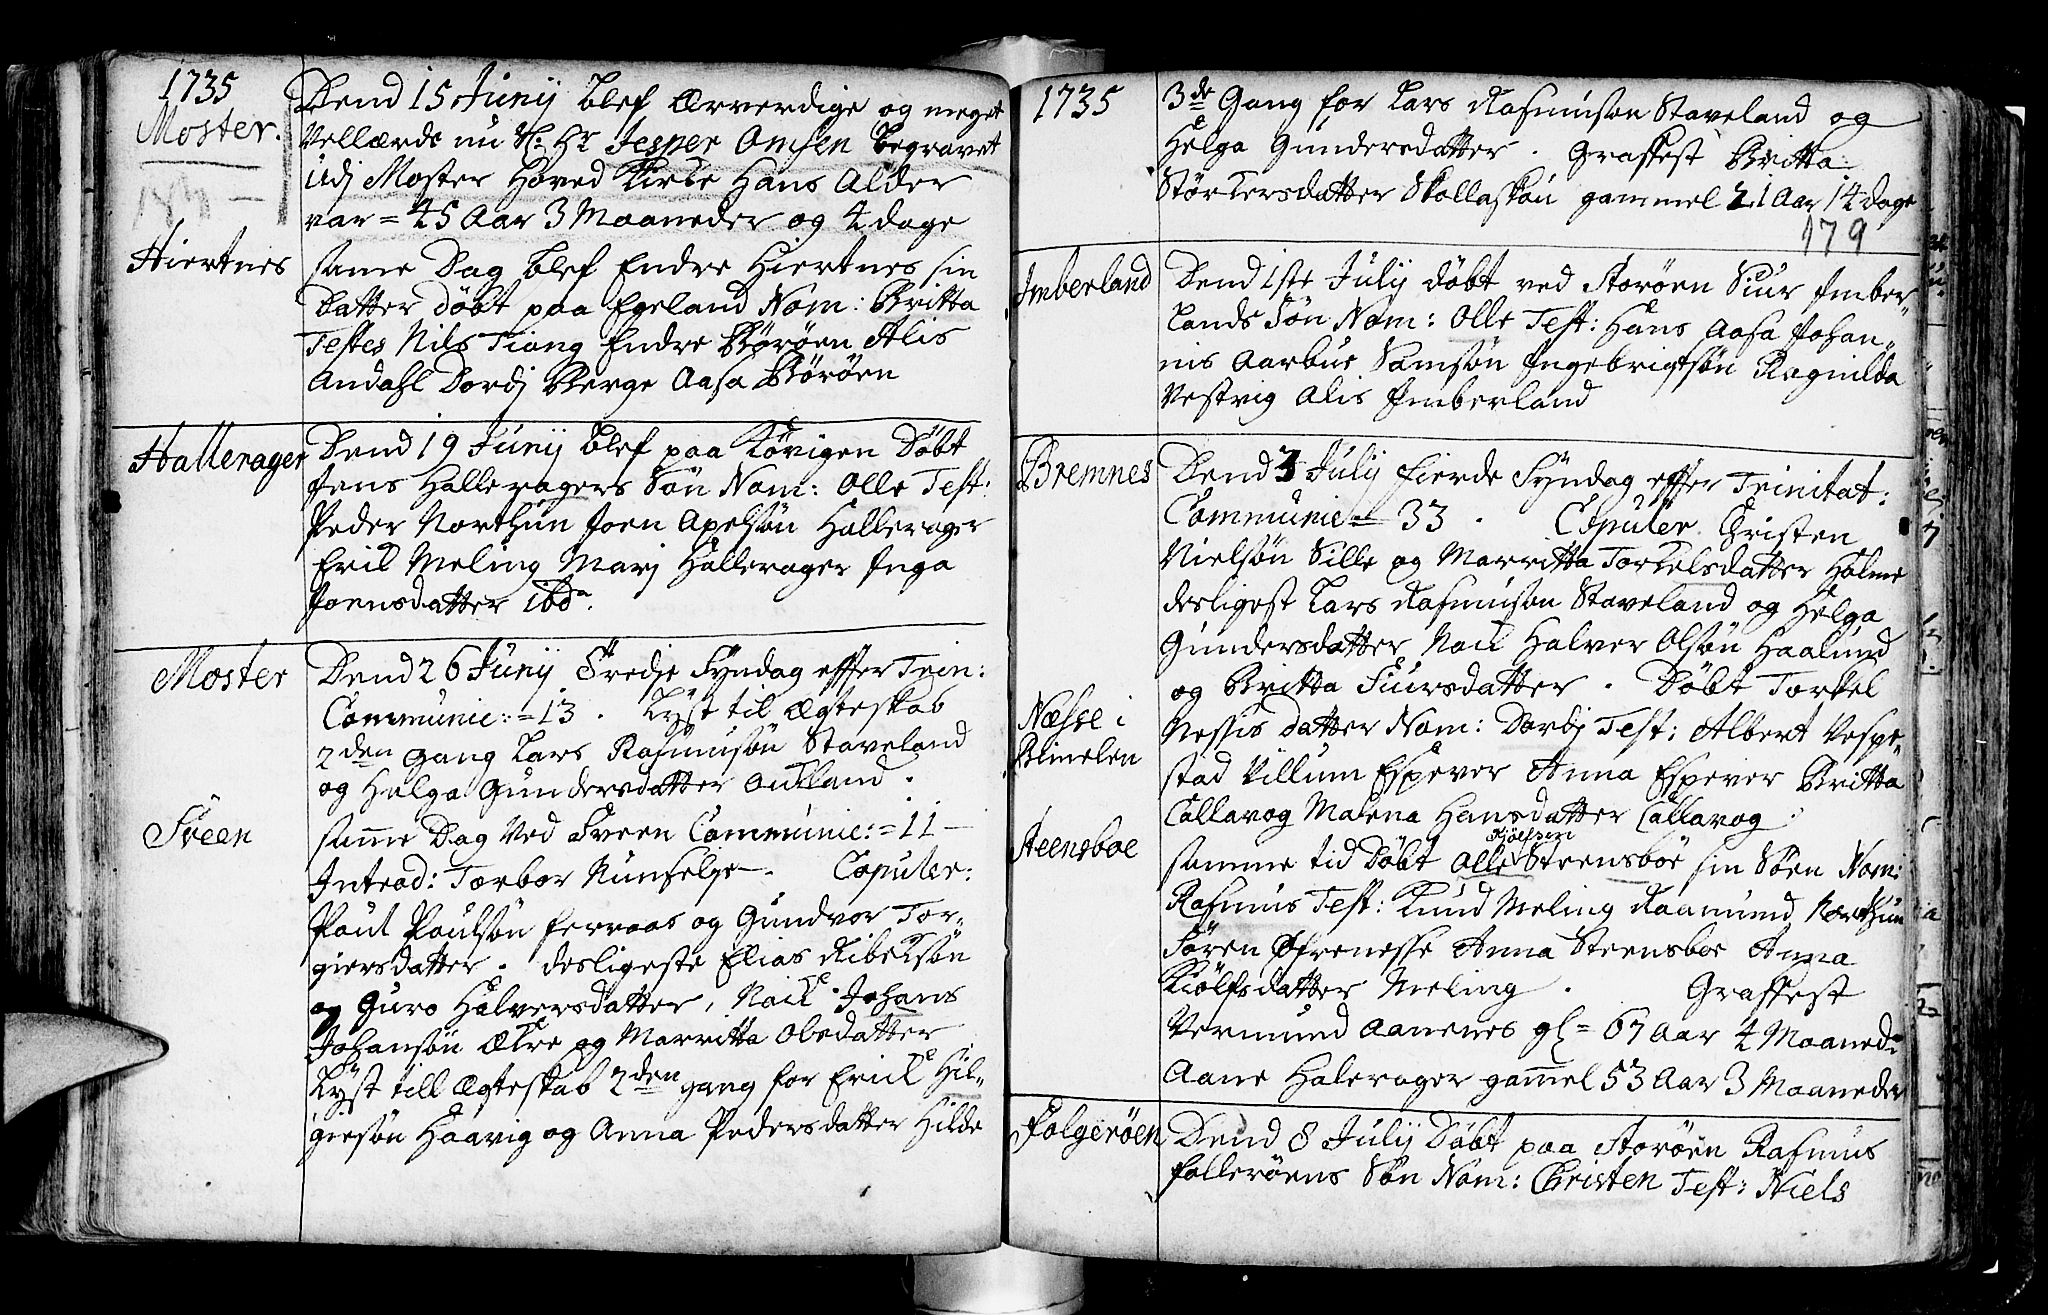 1735
Moster.
Dend 15 Junij blef Ærverdige og meget
Vellærde nu Sl: Hr Jesper Omsen begravet
Udj Moster Hoved Kirke Hans Alder
var = 45 Aar 3 Maaneder og 4 dage
Hiertnes
samme Dag blef Endre Hiertnes sin
Datter döbt paa Egeland Nom: Britta
Testes Nils Tiong Endre Böröen Alis
Andahl Dordj Berge Aasa Böröen
Hallerager
Dend 19 Junij blef paa Körigen Döbt
Jens Halleragers Sön Nom: Olle Test:
Peder Northun Joen Apelsön Hallerager
Erik Meling Marj Hallerager Inga
Joensdatter ibd.
Moster
Dend 26 Junij Tredje Syndag effter Trin:
Communic: = 13. Lyst til Ægteskab
2den gang Lars Rasmusön Staveland
og Helga Gundersdatter Outland.
Sveen
samme Dag Ved Sveen Communic: = 11 —
Introd: Torbor Copuler:
Poul Poulsön Ferraas og Gundvor Tor-
giersdatter. desligeste Elias Ribeksön
og Guro Halversdatter, Nock Johans
Johansön Økre og Marritta Olsdatter
Lyst till Ægteskab 2den gang for Erick Hil-
giesön Haavig og Anna Pedersdatter Hilde
1735
3de Gang for Lars Rasmusön Staveland og
Helga Gundersdatter. Graffest Britta
Störkersdatter Skollaskou gammel 21 Aar 14 dage
179
Imberland
Dend 1ste Julij döbt ved Storöen Siur Imber-
lands Sön Nom: Olle Test: Hans Aasa Johan-
nis Aarbue Samsön Ingebrigtsön Ragnilda
Vestvig Alis Imberland
Bremnes
Dend 3 Julij fierde Syndag effter Trinitat:
Communic = 33. Copuler Christen
Nielsön Sille og Marritta Torkelsdatter Holme
desligest Lars Rasmusön Staveland og Helga
Gundersdatter Nock Halver Olsön Haalund
og Britta Siursdatter. Döbt Torkel
Næsse i
Bömelen
Nessis datter Nom: Dordj Test: Albert Vespe-
stad Villum Espever Anna Espever Britta
Callavog Malena Hansdatter Callavog.
Steensboe
samme tid Döbt Olle Kjölfsen Steensböe sin Söen Nom:
Rasmus Test: Knud Meling Raamund Northun
Sören Øfrenesse Anna Steensboe Anna
Kiölfsdatter Meling. Graffest
Vermund Aanenes gl = 67 Aar 4 Maaned:
Aane Halerager gammel 53 Aar 3 Maaneder
Folgeröen
Dend 8 Julij Döbt paa Storöen Rasmus
Folleröens Sön Nom: Christen Test: Niels